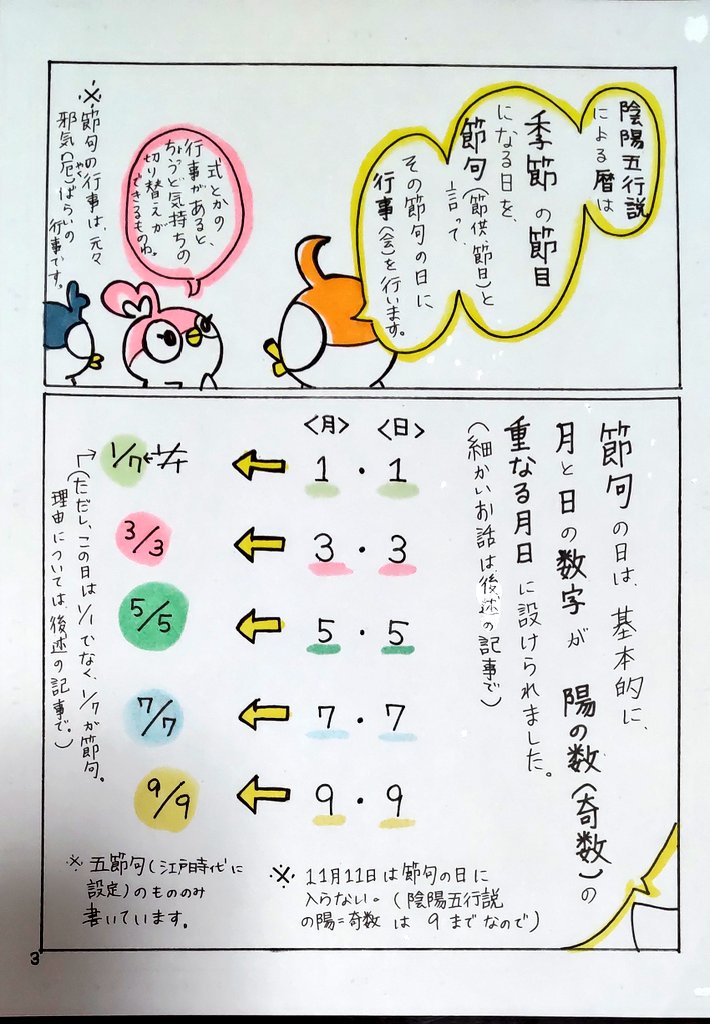 陰陽五行説
による暦は
季節の節目
になる日を、
節句(節供、節日)と
言って、
その節句の日に
行事(会)を行います。
式とかの
行事があると、
ちょうど気持ちの
切り替えが
できるものね。
※節句の行事は、元々
邪気(厄)ばらいの
やく
行事です。
節句の日は、基本的に、
月と日の数字が 陽の数(奇数)の
重なる月日に設けられました。
(細かいお話は後述の記事で)
〈月〉 〈日〉
1・1
1/7←1/1
3・3
3/3
5・5
5/5
7・7
7/7
9・9
9/9
(ただし、この日は1/1でなく、1/7が節句。
理由については、後述の記事で。)
※ 11月11日は節句の日に
入らない。(陰陽五行説
の陽=奇数 は 9までなので)
※ 五節句(江戸時代に
設定)のもののみ
書いています。
3